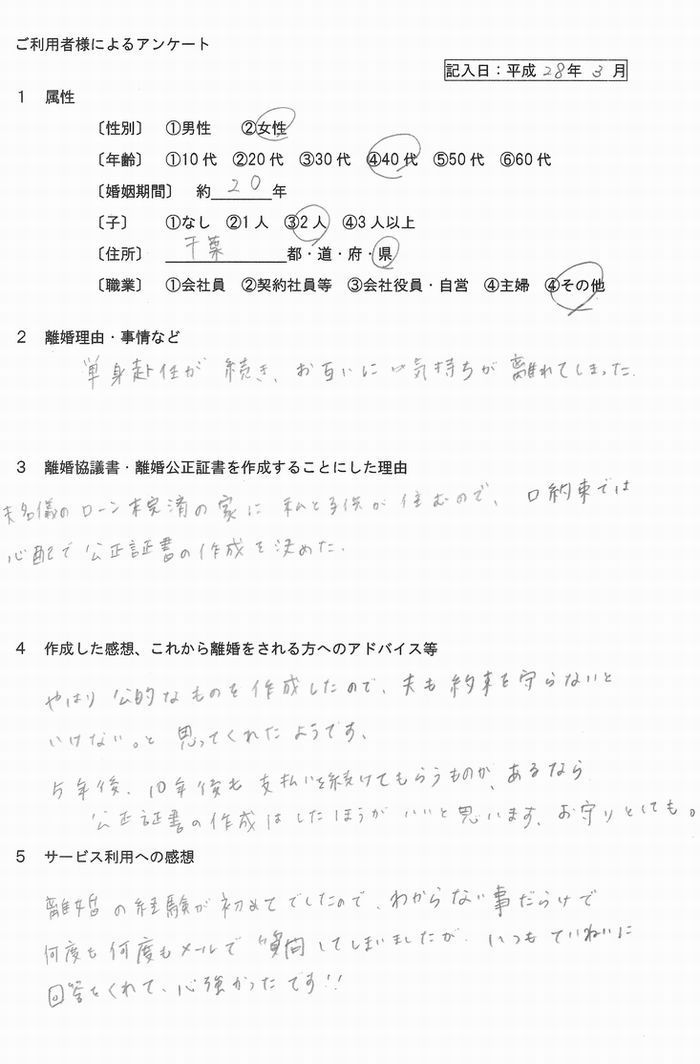 ご利用者様によるアンケート
記入日：平成 28年 3 月
1 属性
〔性別〕 ①男性 ②女性
〔年齢〕 ①10代 ②20代 ③30代 ④40代 ⑤50代 ⑥60代
〔婚姻期間〕 約 20 年
〔子〕 ①なし ②1人 ③2人 ④3人以上
〔住所〕 千葉 都・道・府・県
〔職業〕 ①会社員 ②契約社員等 ③会社役員・自営 ④主婦 ④その他
2 離婚理由・事情など
単身赴任が続き、お互いに気持ちが離れてしまった.
3 離婚協議書・離婚公正証書を作成することにした理由
夫名儀のローン未完済の家に私と子供が住むので、口約束では
心配で公正証書の作成を決めた.
4 作成した感想、これから離婚をされる方へのアドバイス等
やはり公的なものを作成したので、夫も約束を守らないと
いけない。と思ってくれたようです、
5年後、10年後も支払いを続けてもらうものが、あるなら
公正証書の作成はしたほうがいいと思います、お守りとしても。
5 サービス利用への感想
離婚の経験が初めてでしたので、わからない事だらけで
何度も何度もメールで質問してしまいましたが、いつもていねいに
回答をくれて、心強かったです!!